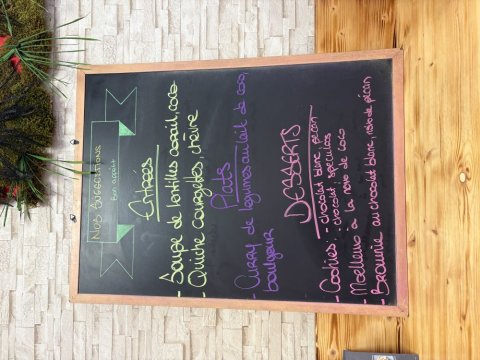 Nos Suggestions
Bon appétit
Entrées
- Soupe de lentilles corail, coco
- Quiche courgettes, chèvre
Plats
- Curry de légumes au lait de coco,
boulgour
DESSERTS
- Cookies: - chocolat blanc, pécan
- chocolat, speculoos
- Moelleux à la noix de coco
- Brownie au chocolat blanc, noix de pécan